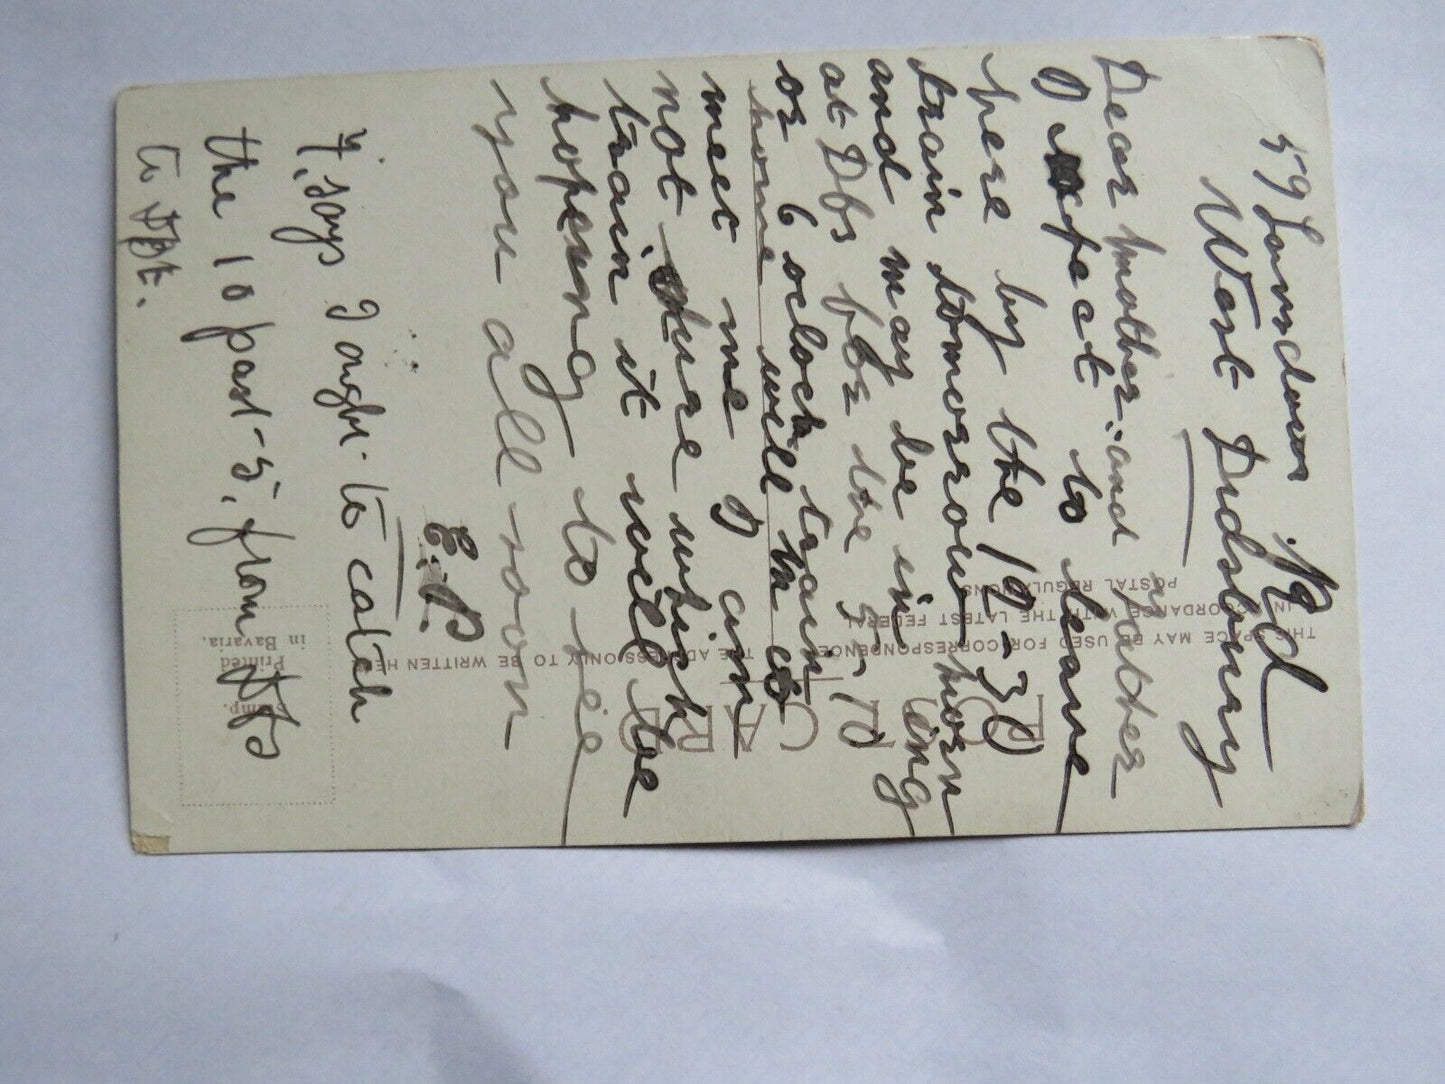 59 Lansdown Rd
West Didsbury
Dear mother and father
I expect to leave
here by the 10-30
train tomorrow morn
ing
and may be in
at Dbs for the 5-10
or 6 oclock train
home will
meet me I am
not shure which
train it will be
hopeing to see
you all soon
E. P.
F. says I ought to catch
the 10 past 5, from Dfs
to
POST CARD
THIS SPACE MAY BE USED FOR CORRESPONDENCE
IN ACCORDANCE WITH THE LATEST FEDERAL
POSTAL REGULATIONS
THE ADDRESS ONLY TO BE WRITTEN HERE
Stamp.
Printed
in Bavaria.